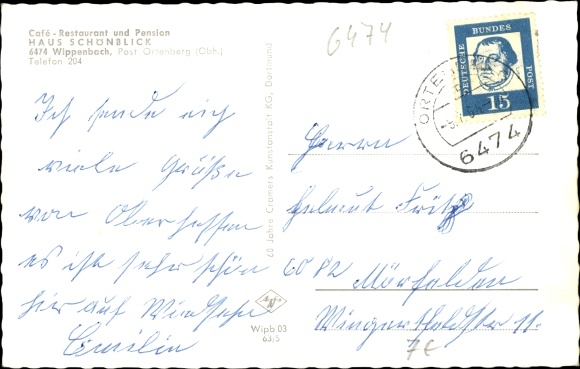 Café - Restaurant und Pension
HAUS SCHÖNBLICK
6474 Wippenbach, Post Ortenberg (Obh.)
Telefon 204
6474
DEUTSCHE BUNDESPOST
15
ORTEN
6474
Ich sende euch
viele Grüße
von Oberhessen
es ist sehr schön
hier auf
60 Jahre Cramers Kunstanstalt KG, Dortmund
Wipb 03
63/5
Herrn
Helmut Fritz
6082 Mörfelden
11.
7€